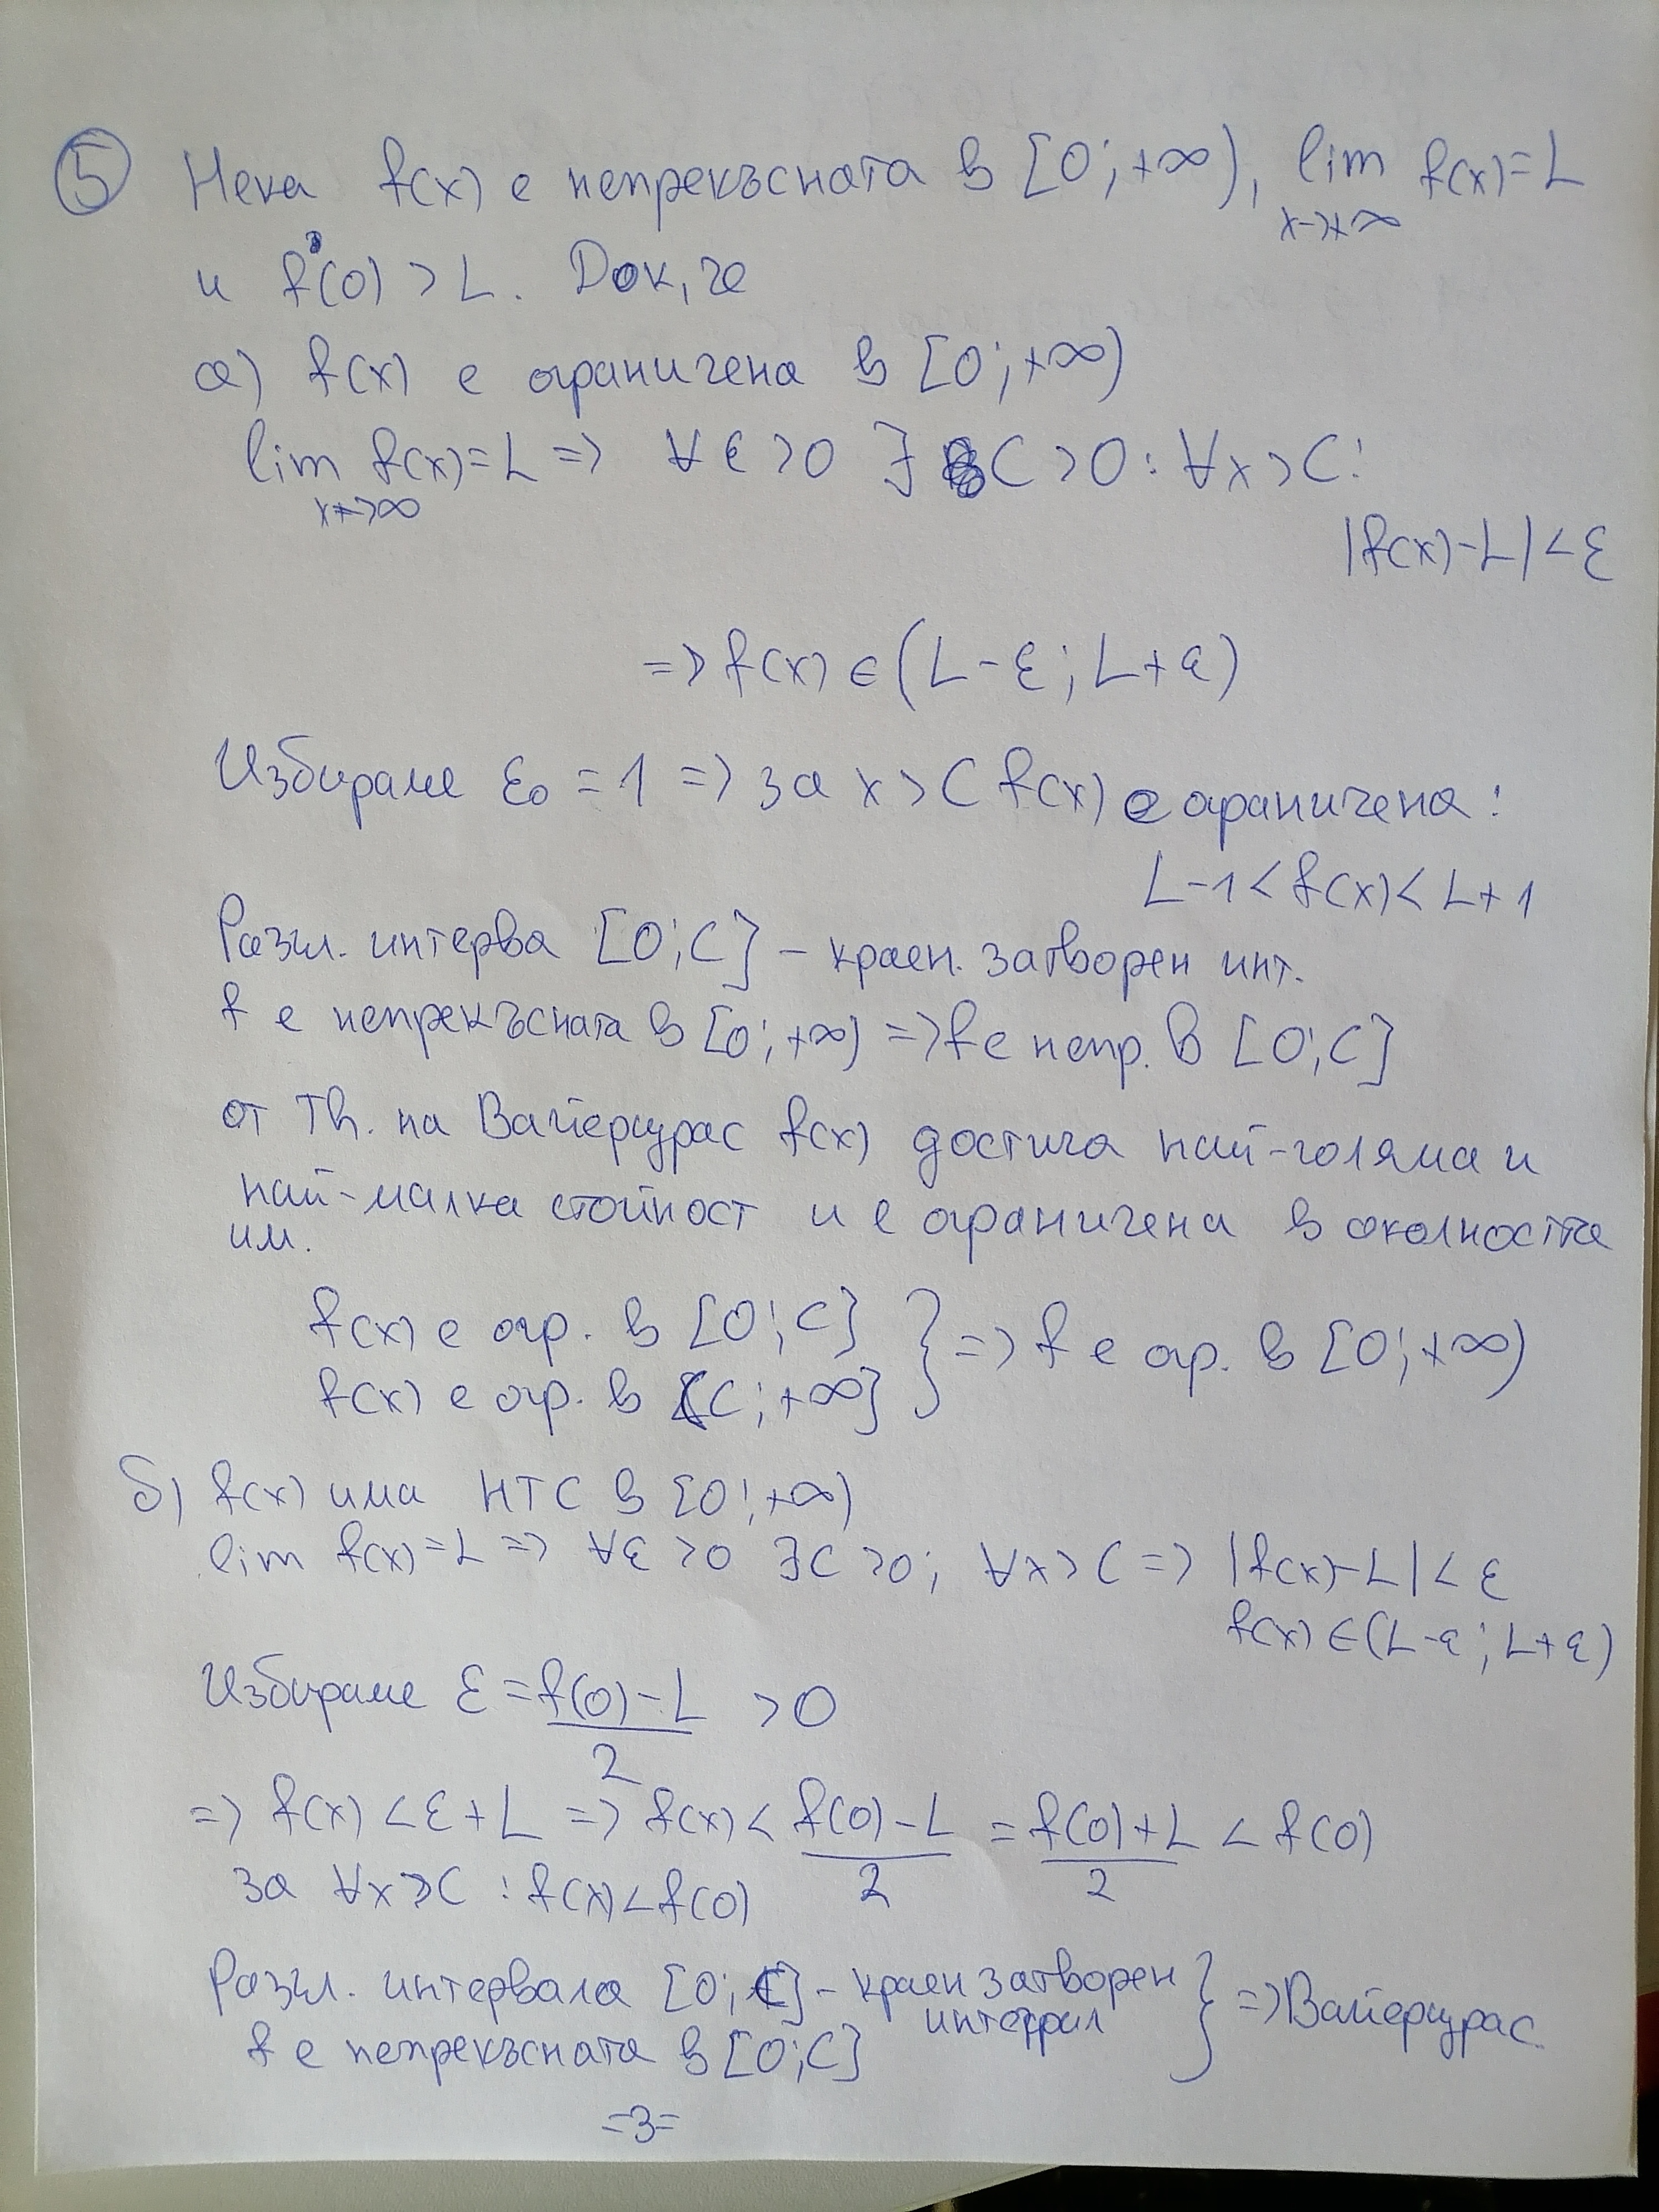 5 Нека f(x) е непрекъсната в [0;+∞), lim f(x)=L
x→+∞
и f(0)>L. Док, че
а) f(x) е ограничена в [0;+∞)
lim f(x)=L => ∀ε>0 ∃ C>0: ∀x>C:
x→∞
|f(x)-L|<ε
=> f(x)∈(L-ε;L+ε)
Избираме ε₀=1 => за x>C f(x) е ограничена:
L-1<f(x)<L+1
Разгл. интерва [0;C] – краен. затворен инт.
f е непрекъсната в [0;+∞) => f е непр. в [0;C]
от Th. на Вайерщрас f(x) достига най-голяма и
най-малка стойност и е ограничена в околността
им.
f(x) е огр. в [0;C] } => f е огр. в [0;+∞)
f(x) е огр. в (C;+∞]
б) f(x) има НГС в [0;+∞)
lim f(x)=L => ∀ε>0 ∃C>0; ∀x>C => |f(x)-L|<ε
f(x)∈(L-ε;L+ε)
Избираме ε=f(0)-L >0
2
=> f(x)<ε+L => f(x)<f(0)-L = f(0)+L < f(0)
2 2
за ∀x>C : f(x)<f(0)
Разгл. интервала [0;C] – краен затворен } => Вайерщрас
интервал
f е непрекъсната в [0;C]
=3=